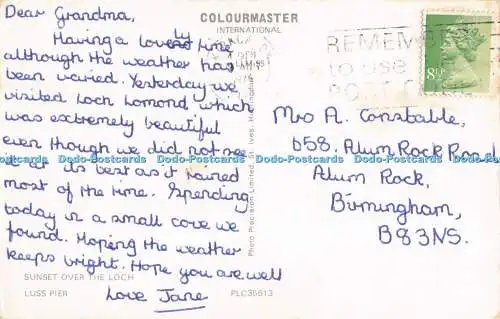 Dear Grandma,
Having a lovely time
although the weather has
been varied. Yesterday we
visited Loch Lomond which
was extremely beautiful
even though we did not see
it at its best as it rained
most of the time. Spending
today in a small cove we
found. Hoping the weather
keeps bright. Hope you are well
Love Jane
SUNSET OVER THE LOCH
LUSS PIER
PLC35613
COLOURMASTER
INTERNATIONAL
Photo Precision Limited, St. Ives, Huntingdon
REMEM
to use
8½P
Mrs A. Constable,
658. Alum Rock Road
Alum Rock,
Birmingham,
B83NS.
Dodo-Postcards Dodo-Postcards Dodo-Postcards Dodo-Postcards Dodo-Postcards